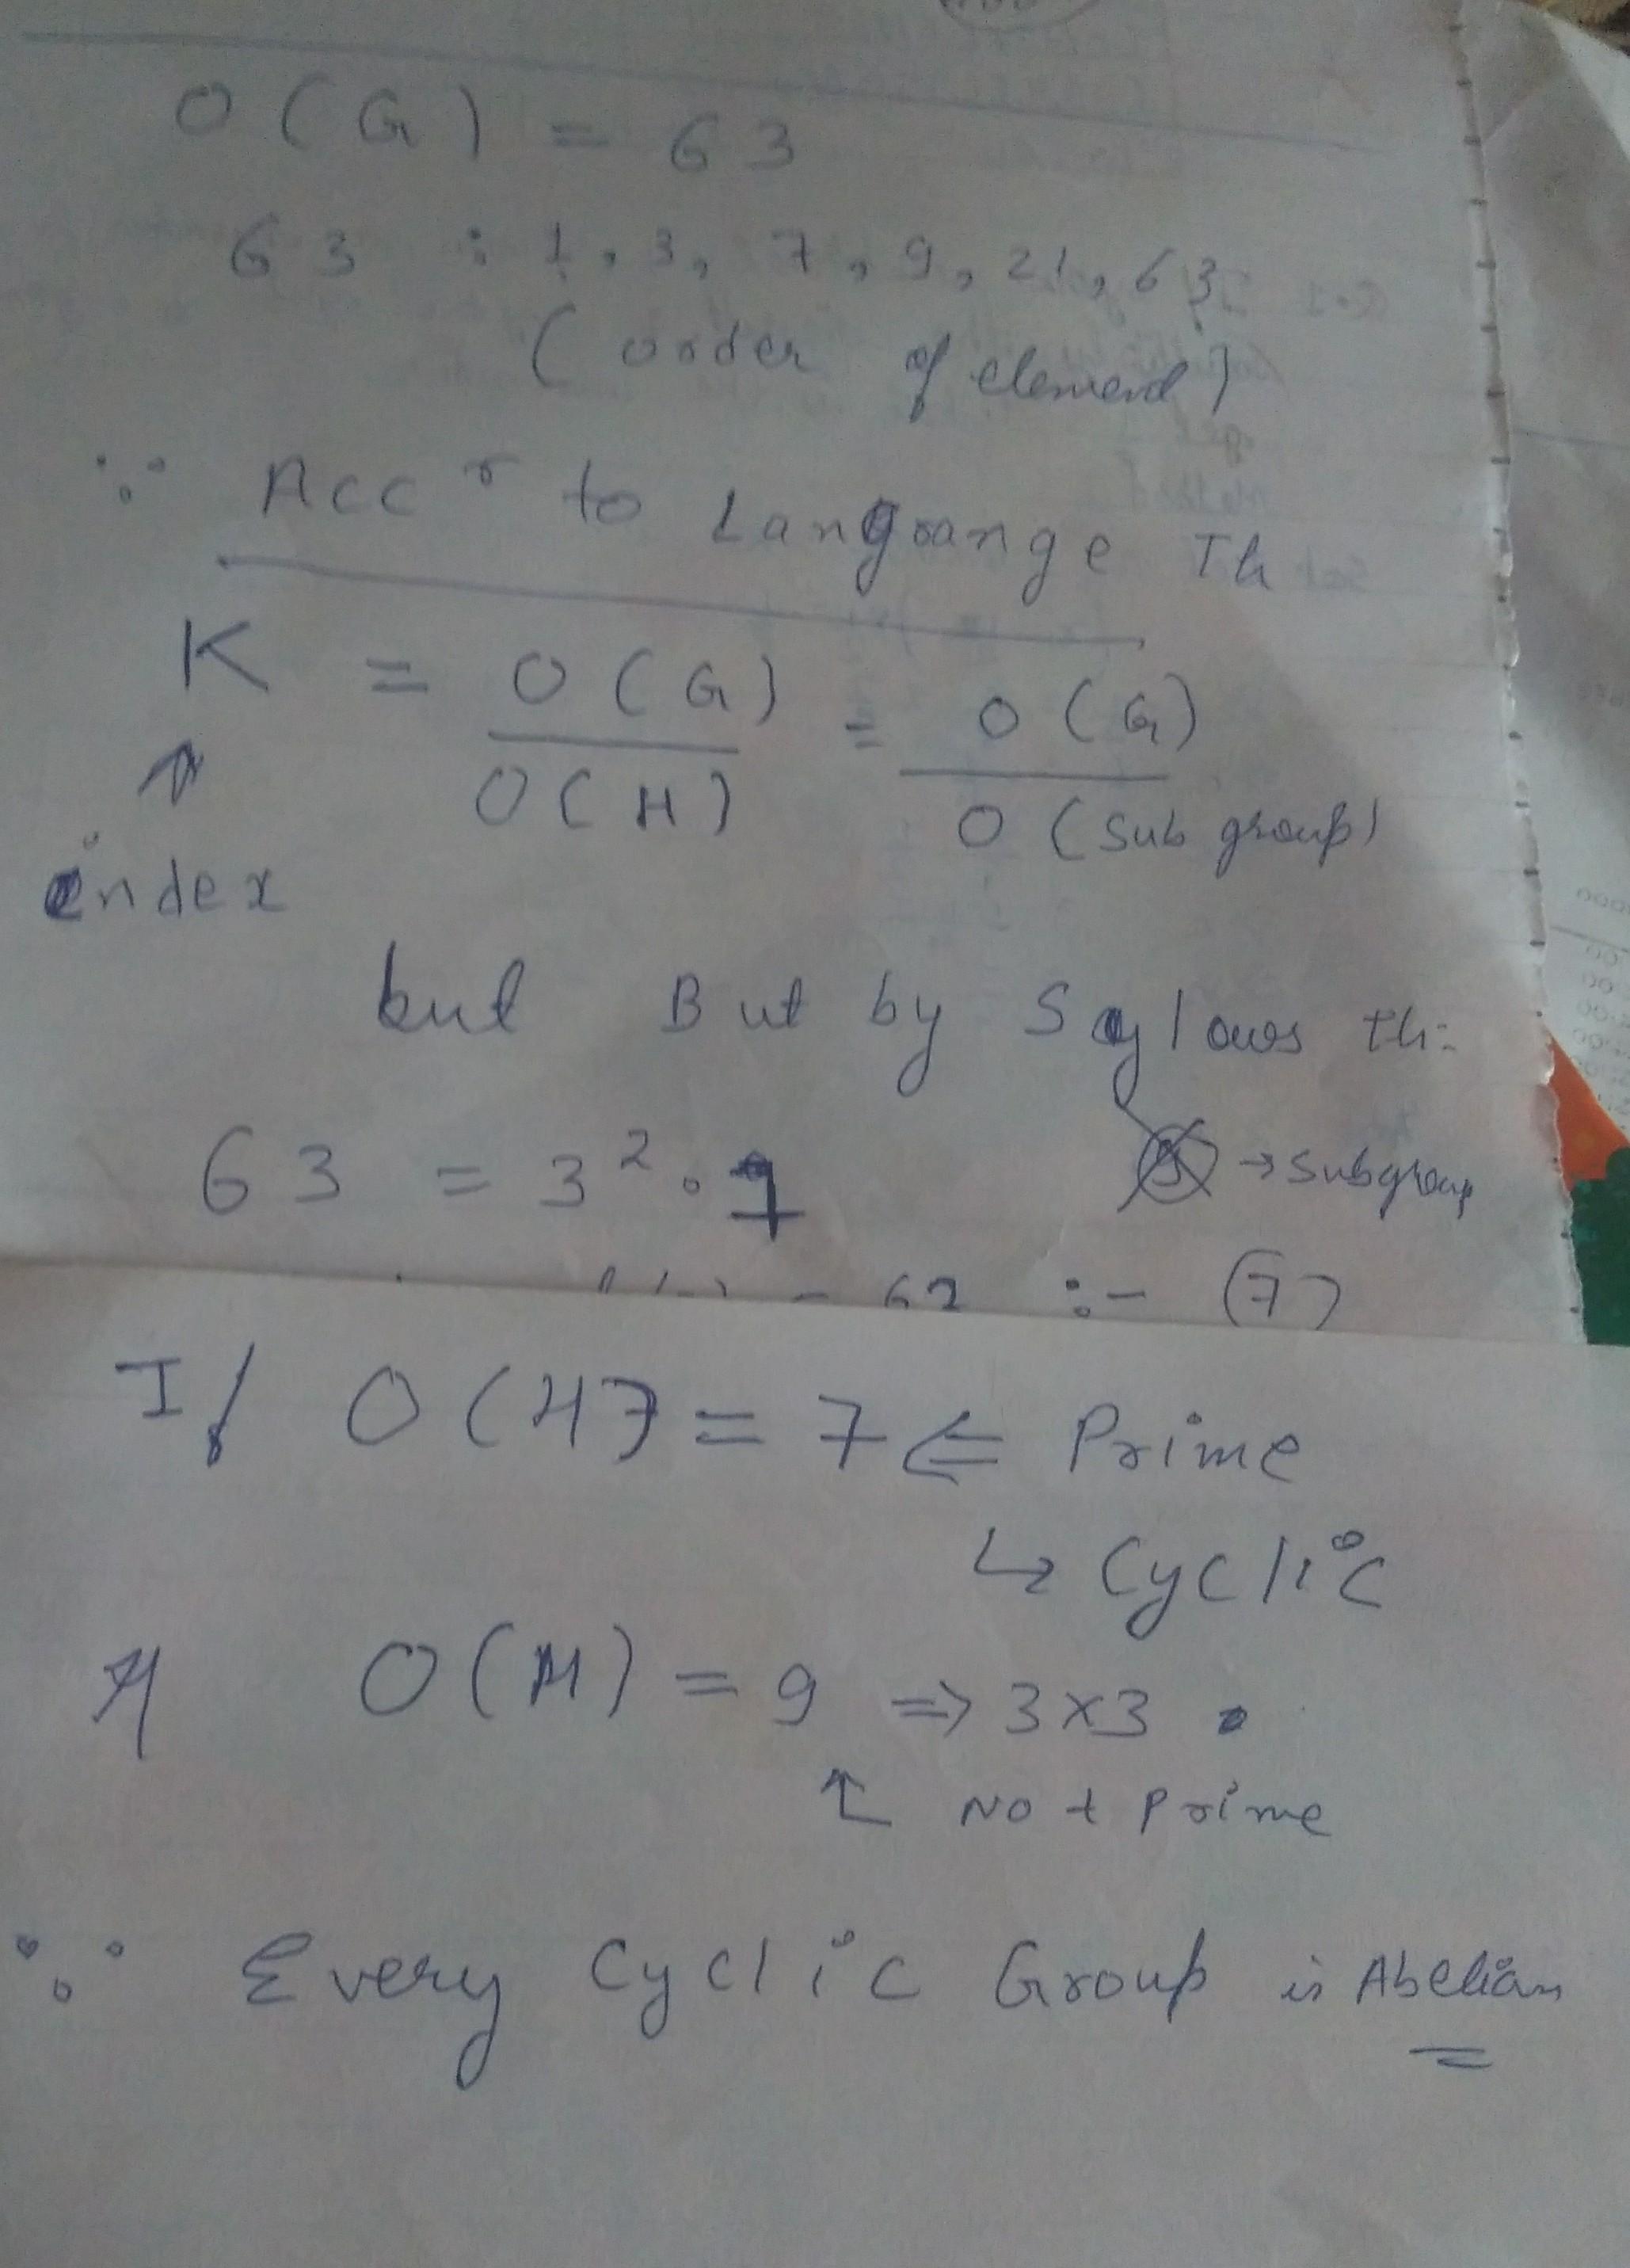 O(G) = 63
63 : 1, 3, 7, 9, 21, 63
(order of element)
∵ Accr to Langrange Th
K = O(G) / O(H) = O(G) / O(Sub group)
↑
index
but But by Saylows th:
63 = 3² · 7 → subgroup
63 :- (7)
If O(H) = 7 ⇐ Prime
↳ Cyclic
If O(H) = 9 ⇒ 3×3 .
↑ Not Prime
∵ Every Cyclic Group is Abelian